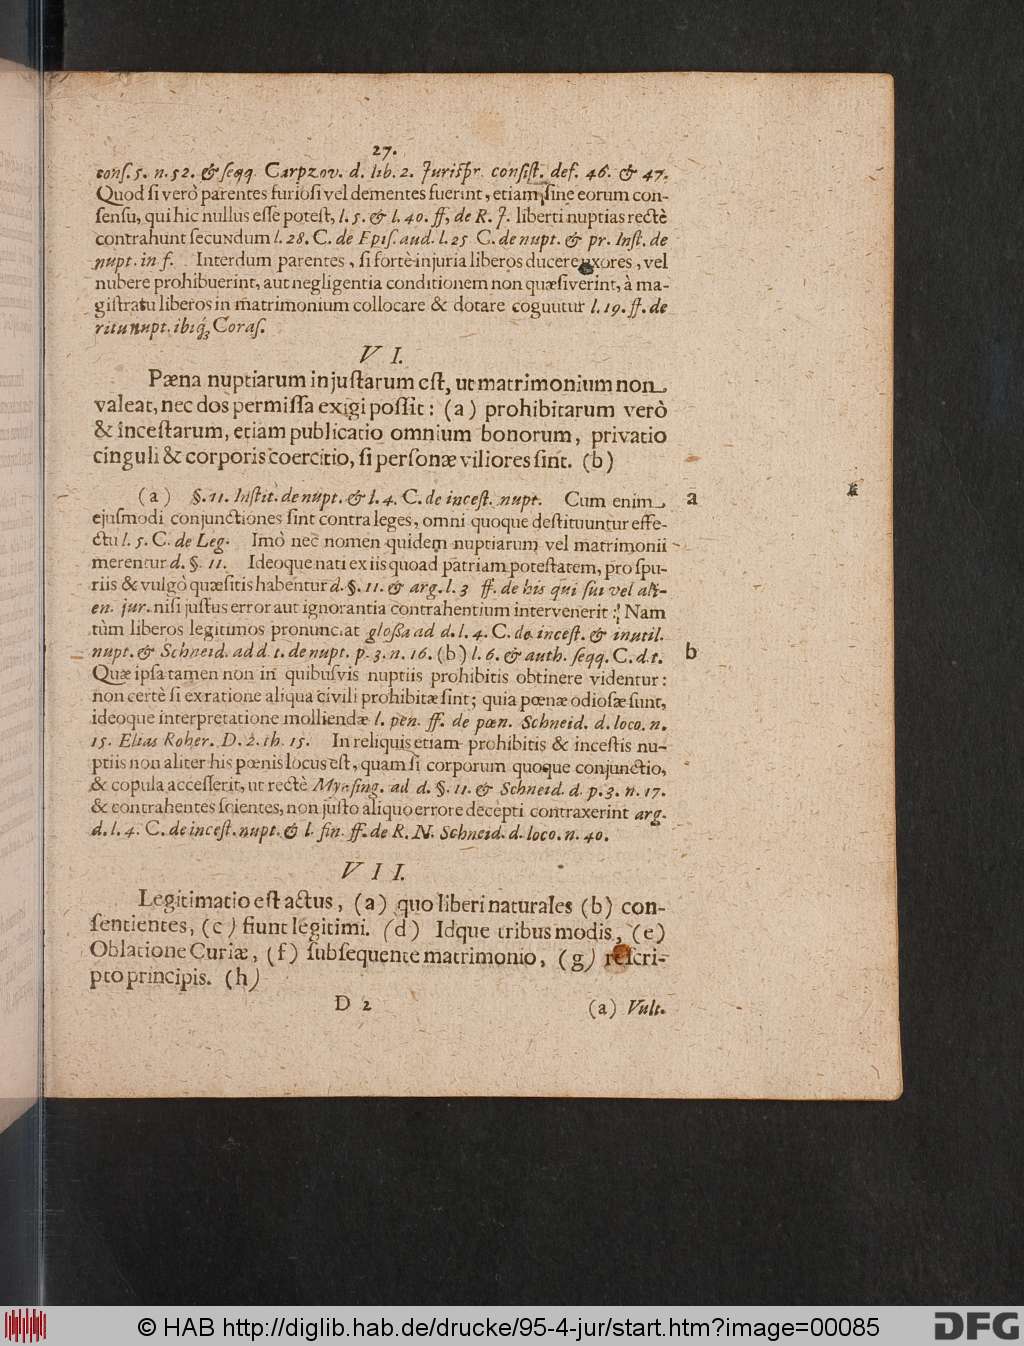 27.
conſ. 5. n. 52. & ſeqq. Carpzov. d. lib. 2. Jurisſpr. conſiſt. def. 46. & 47.
Quod ſi verò parentes furioſi vel dementes fuerint, etiam ſine eorum con-
ſenſu, qui hic nullus eſſe poteſt, l. 5. & l. 40. ff. de R. J. liberti nuptias rectè
contrahunt ſecuNdum l. 28. C. de Epiſ. aud. l. 25 C. de nupt. & pr. Inſt. de
nupt. in f. Interdum parentes, ſi fortè injuria liberos ducere uxores, vel
nubere prohibuerint, aut negligentia conditionem non quæſiverint, à ma-
giſtratu liberos in matrimonium collocare & dotare coguutur l. 19. ff. de
ritu nupt. ibiq́; Coraſ.
VI.
Pæna nuptiarum injuſtarum eſt, ut matrimonium non
valeat, nec dos permiſſa exigi poſſit: (a) prohibitarum verò
& inceſtarum, etiam publicatio omnium bonorum, privatio
cinguli & corporis coercitio, ſi perſonæ viliores ſint. (b)
(a) §. 11. Inſtit. de nupt. & l. 4. C. de inceſt. nupt. Cum enim a
ejuſmodi conjunctiones ſint contra leges, omni quoque deſtituuntur effe-
ctu l. 5. C. de Leg. Imò nec nomen quidem nuptiarum vel matrimonii
merentur d. §. 11. Ideoque nati ex iis quoad patriam poteſtatem, pro ſpu-
riis & vulgò quæſitis habentur d. §. 11. & arg. l. 3 ff. de his qui ſui vel ali-
en. jur. niſi juſtus error aut ignorantia contrahentium intervenerit: Nam
tùm liberos legitimos pronunciat gloſſa ad d. l. 4. C. de inceſt. & inutil.
nupt. & Schneid. ad d. t. de nupt. p. 3. n. 16. (b) l. 6. & auth. ſeqq. C. d. t. b
Quæ ipſa tamen non in quibuſvis nuptiis prohibitis obtinere videntur:
non certè ſi ex ratione aliqua civili prohibitæ ſint; quia pœnæ odioſæ ſunt,
ideoque interpretatione molliendæ l. pen. ff. de pœn. Schneid. d. loco. n.
15. Elias Roher. D. 2. th. 15. In reliquis etiam prohibitis & inceſtis nu-
ptiis non aliter his pœnis locus eſt, quam ſi corporum quoque conjunctio,
& copula acceſſerit, ut rectè Mynſing. ad d. §. 11. & Schneid. d. p. 3. n. 17.
& contrahentes ſcientes, non juſto aliquo errore decepti contraxerint arg.
d. l. 4. C. de inceſt. nupt. & l. fin. ff. de R. N. Schneid. d. loco. n. 40.
VII.
Legitimatio eſt actus, (a) quo liberi naturales (b) con-
ſentientes, (c) fiunt legitimi. (d) Idque tribus modis, (e)
Oblatione Curiæ, (f) ſubſequente matrimonio, (g) reſcri-
pto principis. (h)
D 2 (a) Vult.
© HAB http://diglib.hab.de/drucke/95-4-jur/start.htm?image=00085 DFG